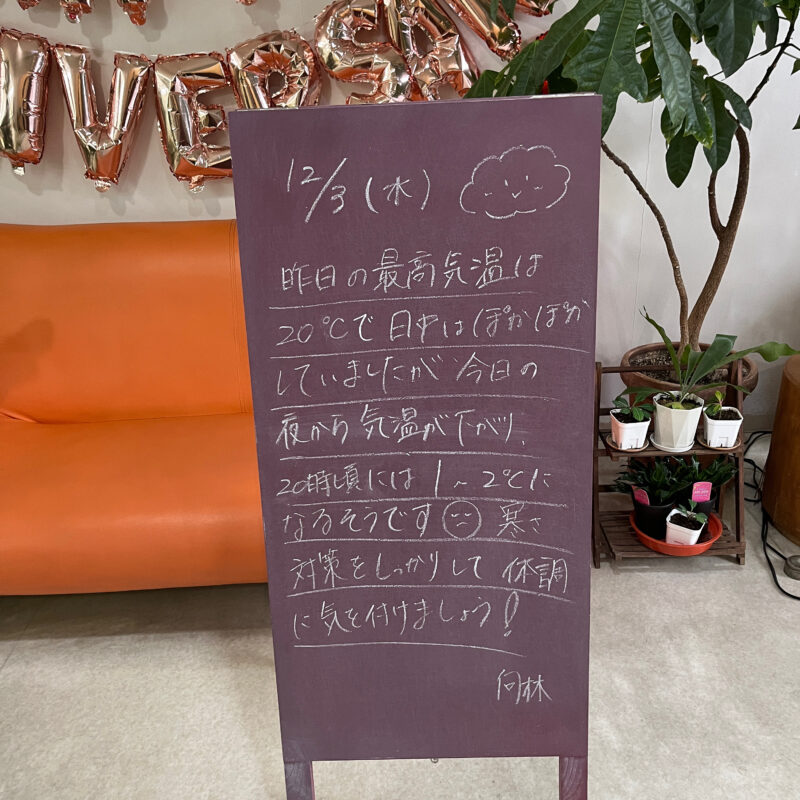 IVERSA
12/3(水)
昨日の最高気温は
20℃で日中はぽかぽか
していましたが今日の
夜から気温が下がり、
20時頃には1~2℃に
なるそうです 寒さ
対策をしっかりして体調
に気を付けましょう!
向林